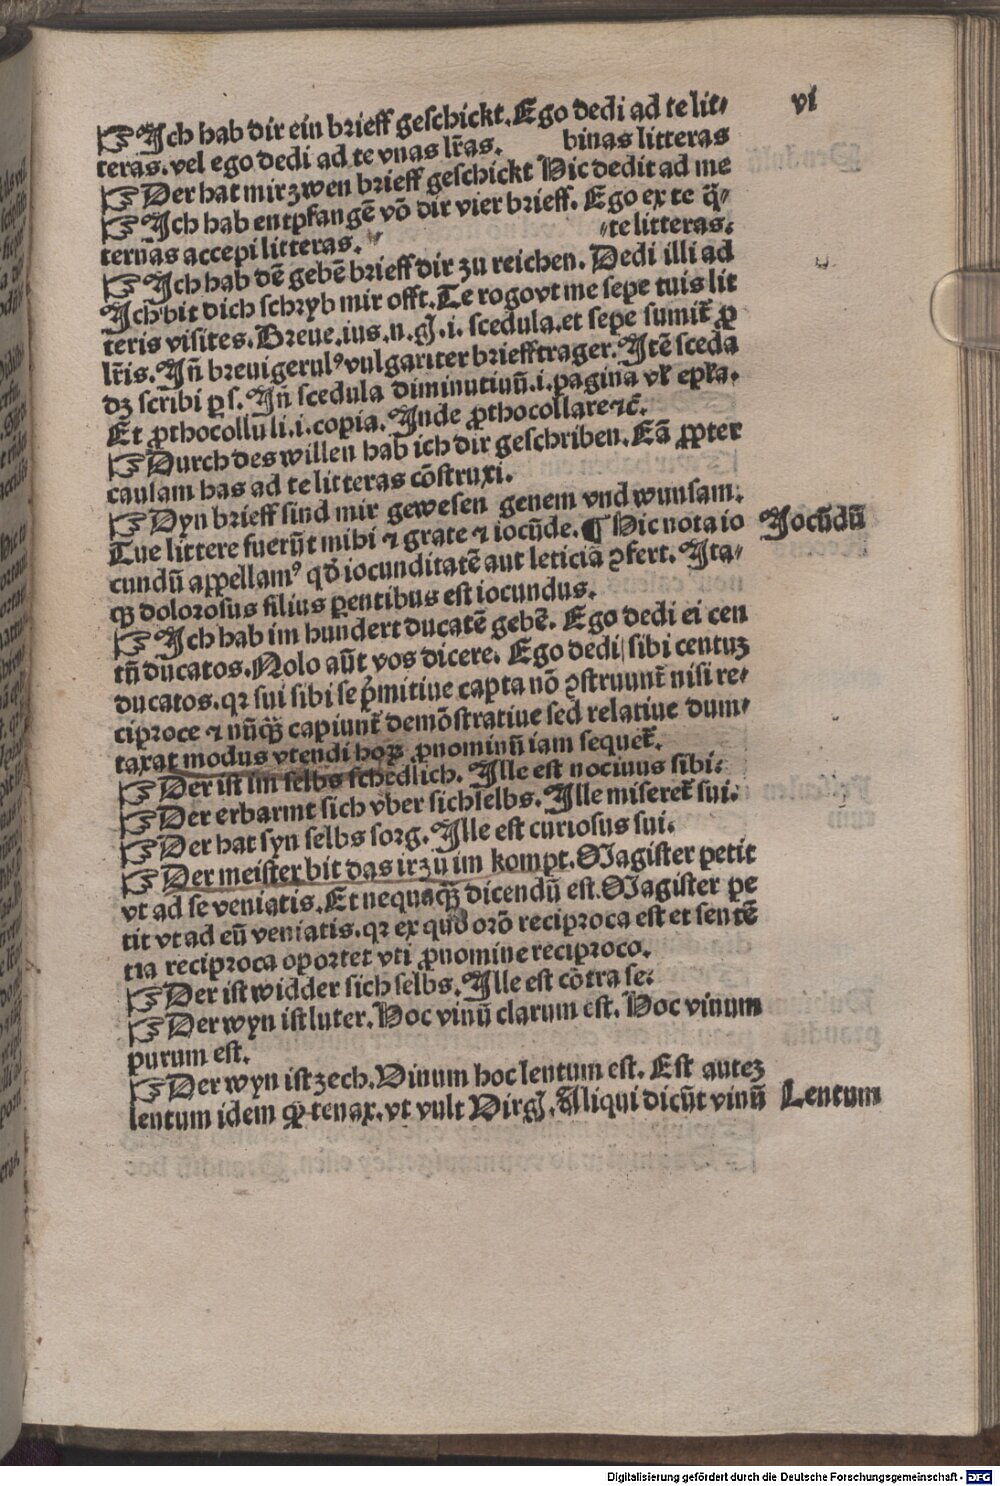 vi
☞ Ich hab dir ein brieff geschickt. Ego dedi ad te lit-
teras. vel ego dedi ad te vnas lr̄as. binas litteras
☞ Der hat mir zwen brieff geschickt Hic dedit ad me
☞ Ich hab entpfangē vō dir vier brieff. Ego ex te q̄-
ternas accepi litteras. -te litteras.
☞ Ich hab dē gebē brieff dir zu reichen. Dedi illi ad
Ich bit dich schryb mir offt. Te rogo vt me sepe tuis lit
teris visites. Breue. ius. n. g. i. scedula. et sepe sumit̄ p
lr̄is. Iñ breuigerulꝰ vulgariter brieff trager. Itē sceda
dꝫ scribi p s. Iñ scedula diminutiuū. i. pagina vl̄ epl̄a.
Et ꝓthocollū li. i. copia. Inde ꝓthocollare ⁊c̄.
☞ Durch des willen hab ich dir geschriben. Eā ꝓpter
causam has ad te litteras cōstruxi.
☞ Dyn brieff sind mir gewesen genem vnd wunsam.
Tue littere fuerūt mihi ⁊ grate ⁊ iocūde. ¶ Hic nota io
Jocūdū
cundū appellamꝰ qd̄ iocunditatē aut leticiā ꝯfert. Ita-
qꝫ dolorosus filius ꝑentibus est iocundus.
☞ Ich hab im hundert ducatē gebē. Ego dedi ei cen
tū ducatos. Nolo aūt vos dicere. Ego dedi sibi centuꝫ
ducatos. qr sui sibi se p̄mitiue capta nō ꝯstruunt̄ nisi re-
ciproce ⁊ nūqꝫ̄ capiunt̄ demōstratiue sed relatiue dum-
taxat modus vtendi hoꝝ ꝓnominū iam sequet̄.
☞ Der ist im selbs schedlich. Ille est nociuus sibi.
☞ Der erbarmt sich vber sich selbs. Ille miseret̄ sui.
☞ Der hat syn selbs sorg. Ille est curiosus sui.
☞ Der meister bit das ir zu im kompt. Magister petit
vt ad se veniatis. Et nequaqꝫ̄ dicendū est. Magister pe
tit vt ad eū veniatis. qr ex quo orō reciproca est et sentē
tia reciproca oportet vti ꝓnomine reciproco.
☞ Der ist widder sich selbs. Ille est cōtra se.
☞ Der wyn ist luter. Hoc vinū clarum est. Hoc vinum
purum est.
☞ Der wyn ist zech. Vinum hoc lentum est. Est auteꝫ
lentum idem qꝫ̄ tenax. vt vult Virg. Aliqui dicūt vinū
Lentum
Digitalisierung gefördert durch die Deutsche Forschungsgemeinschaft - DFG